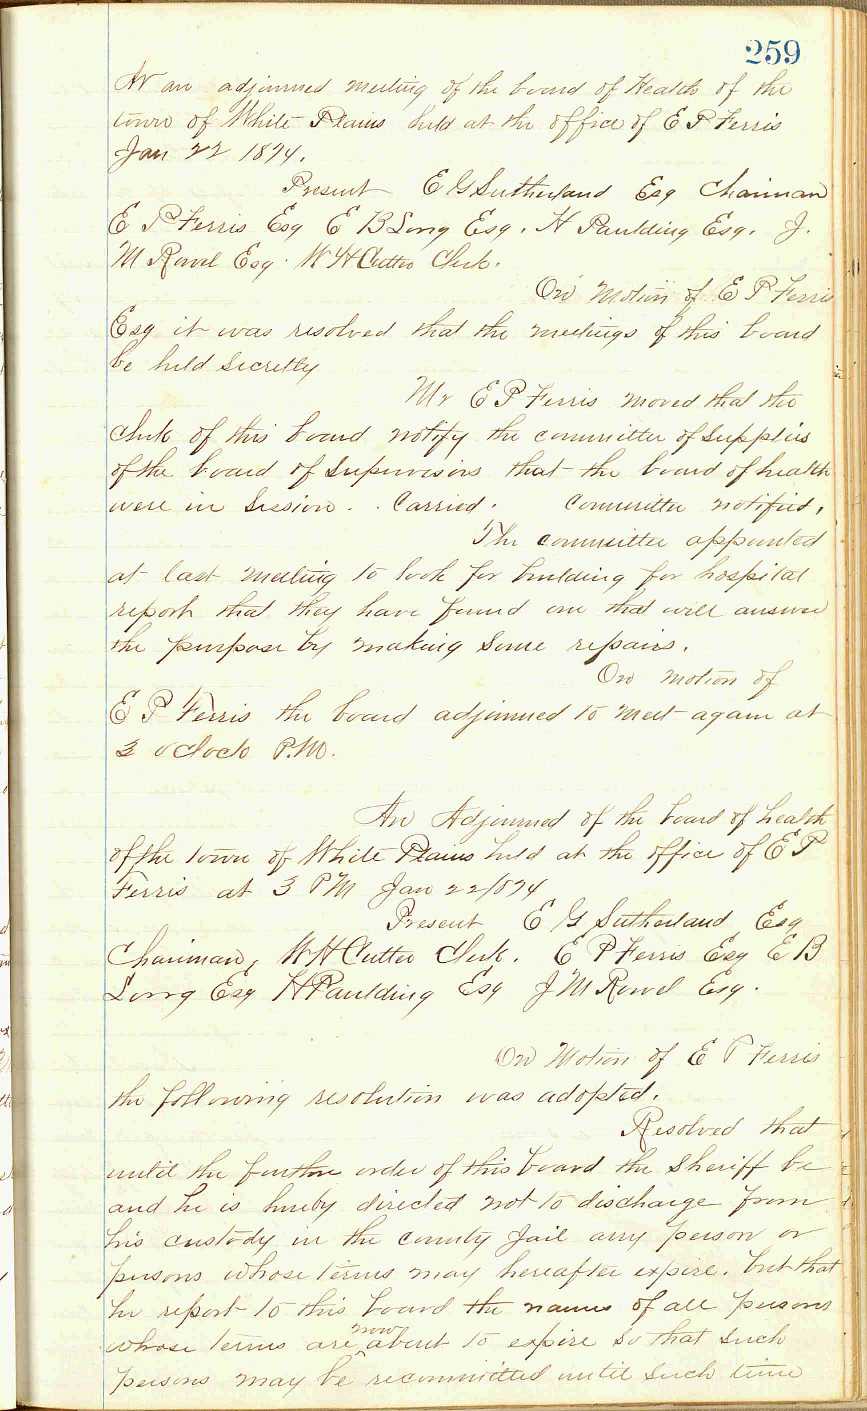 259
At an adjourned meeting of the board of Health of the
town of White Plains held at the office of E P Ferris
Jan 22 1874.
Present E G Sutherland Esq Chairman
E P Ferris Esq E B Long Esq. H Paulding Esq. J.
M Rowel Esq. W H Cutter Clerk.
On Motion of E P Ferris
Esq it was resolved that the meetings of this board
be held Secretly
Mr E P Ferris moved that the
clerk of this board notify the committee of Supplies
of the board of Supervisors that the board of health
were in Session. . Carried. Committee notified.
The committee appointed
at last meeting to look for building for hospital
report that they have found one that will answer
the purpose by making some repairs.
On motion of
E P Ferris the board adjourned to meet again at
3 oclock P.M.
An Adjourned of the board of health
of the town of White Plains held at the office of E P
Ferris at 3 PM Jan 22/874
Present E G Sutherland Esq
Chairman, W H Cutter Clerk. E P Ferris Esq E B
Long Esq H Paulding Esq J M Rowel Esq.
On Motion of E P Ferris
the following resolution was adopted.
Resolved that
until the further order of this board the Sheriff be
and he is hereby directed not to discharge from
his custody in the county Jail any person or
persons whose terms may hereafter expire. but that
he report to this board the names of all persons
whose terms are now about to expire so that such
persons may be recommitted until such time